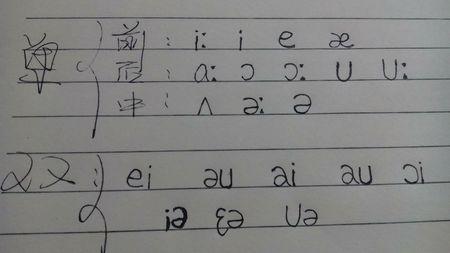 单 前: i: i e æ
后: ɑ: ɔ ɔ: U U:
中: ʌ ə: ə
双: ei əU ai aU ɔi
iə ɛə Uə